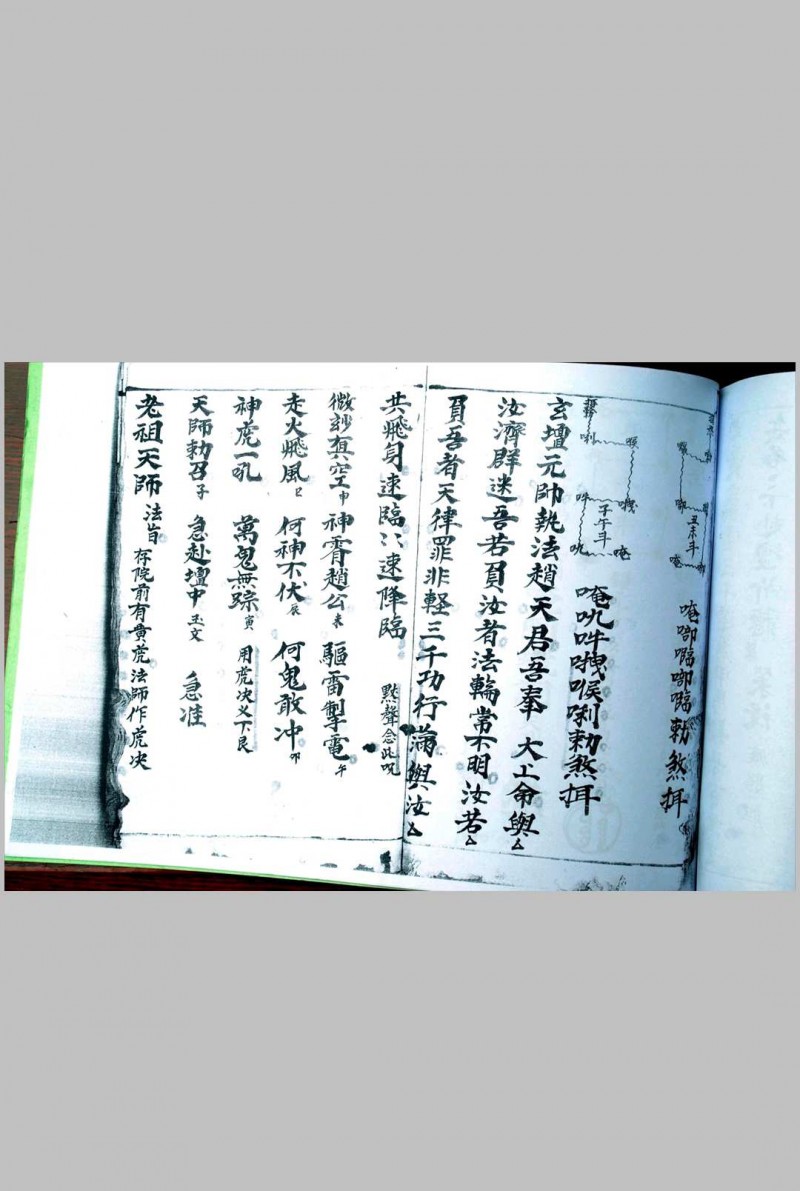 丑未斗
唵啷𠾐啷𠾐勅煞摄
子午斗
唵吼吽㗭喉唎勅煞摄
玄壇元帥執法趙天君吾奉 太上命與厶
汝濟群迷吾若負汝者法輪常不明汝若厶
負吾者天律罪非軽三千功行滿與汝厶
共飛身速臨〻速降臨 默聲念此咒
微玅真空申 神霄趙公未 驅雷掣電午
走火飛風巳 何神不伏辰 何鬼敢冲卯
神虎一吼 萬鬼無踪寅 用虎决义下艮
天師勅召子 急赴壇中玉文 急准
老祖天師 法旨 存院前有黄虎法師作虎决